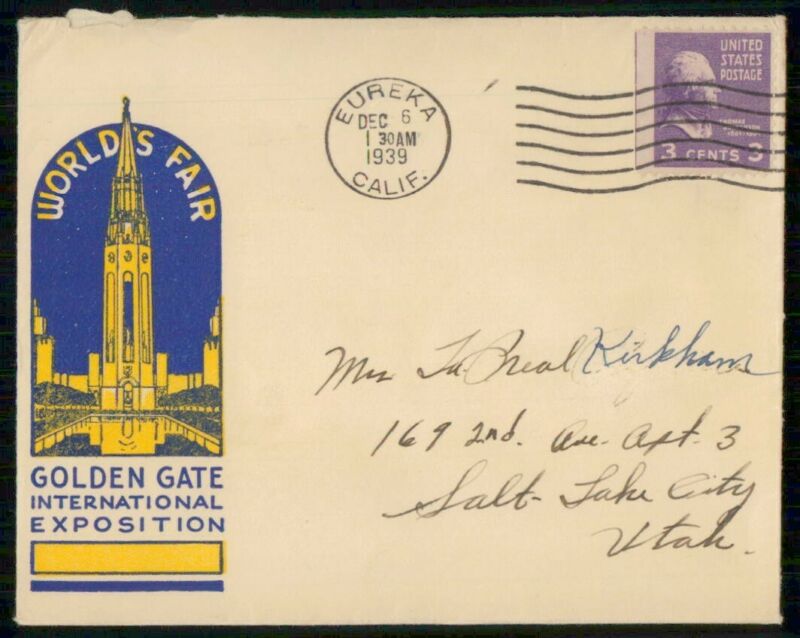 WORLD'S FAIR
GOLDEN GATE
INTERNATIONAL
EXPOSITION
EUREKA
DEC 6
1 30AM
1939
CALIF.
UNITED
STATES
POSTAGE
THOMAS
3 CENTS 3
Kirkham
169 2nd. Ave. Apt. 3
Salt Lake City
Utah.